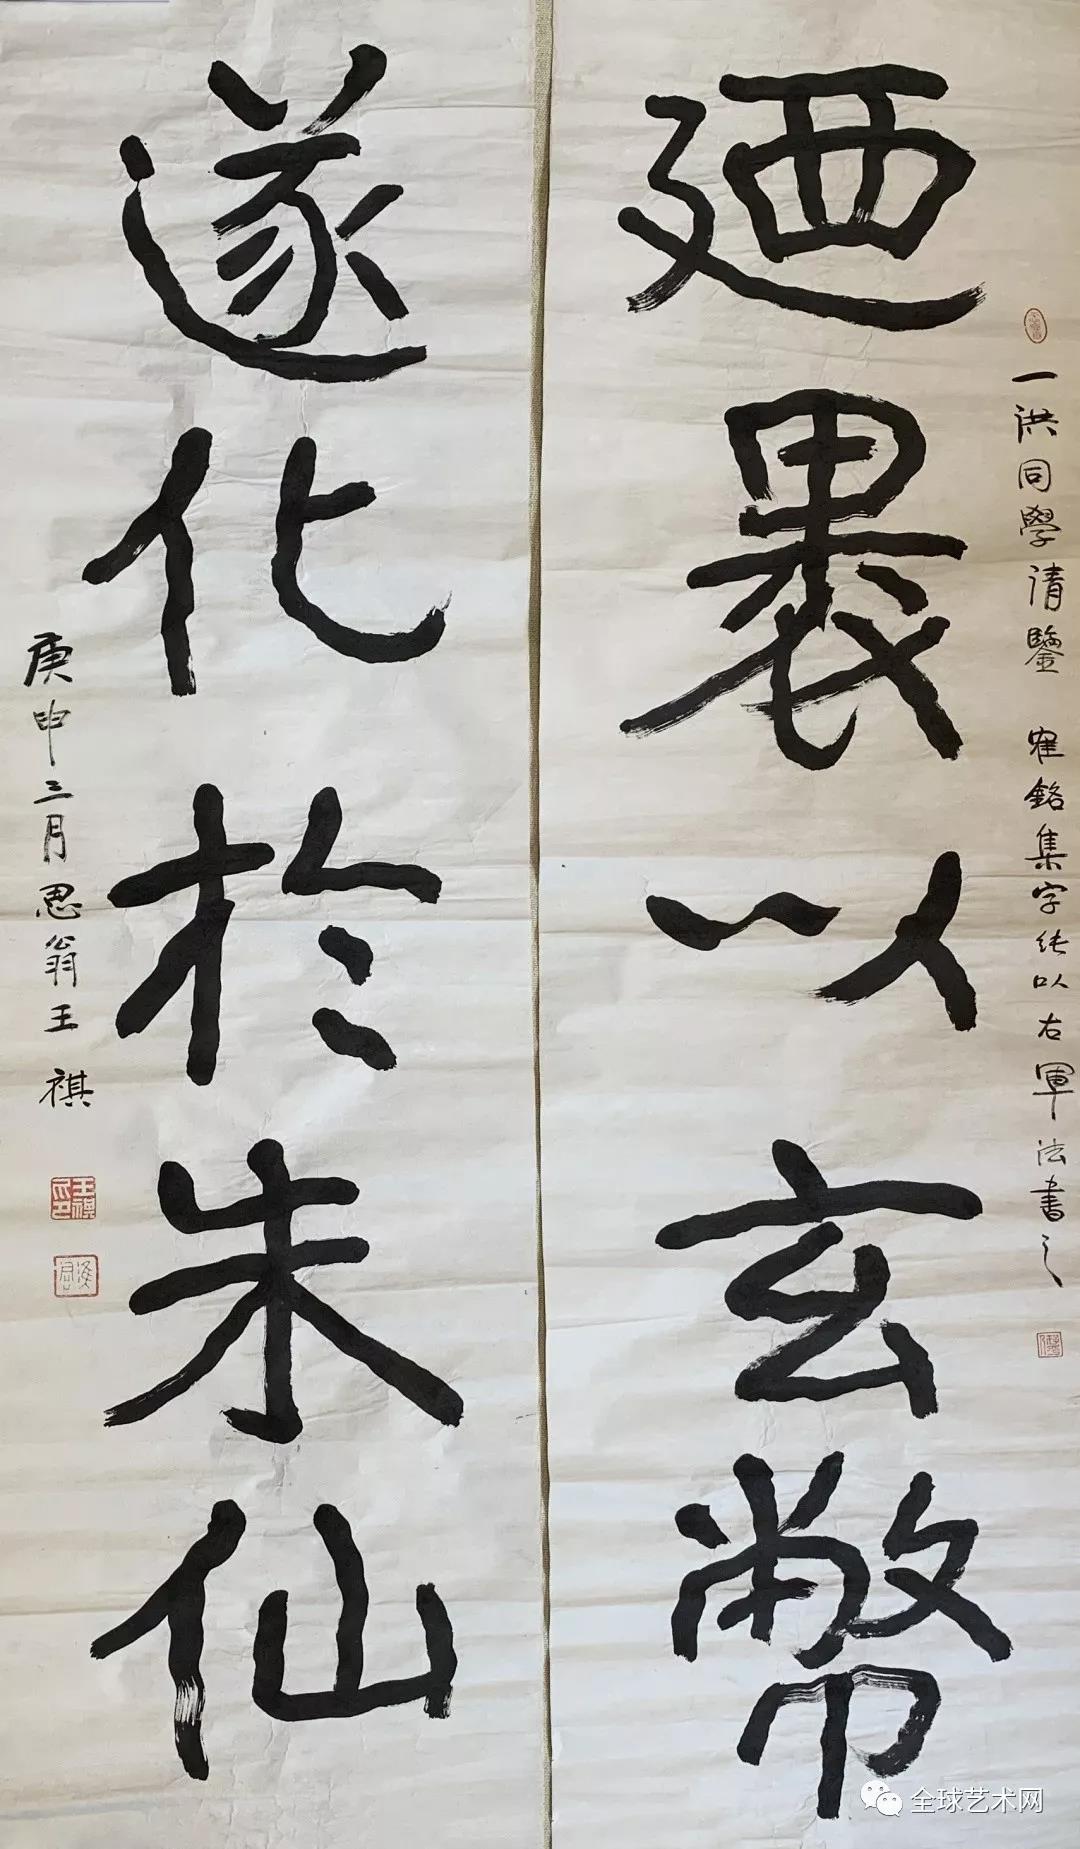 廼裹以玄幣
一洪同學请鑒 寉銘集字纯以右軍法書之
遂化於朱仙
庚申三月忍翁王祺
全球艺术网